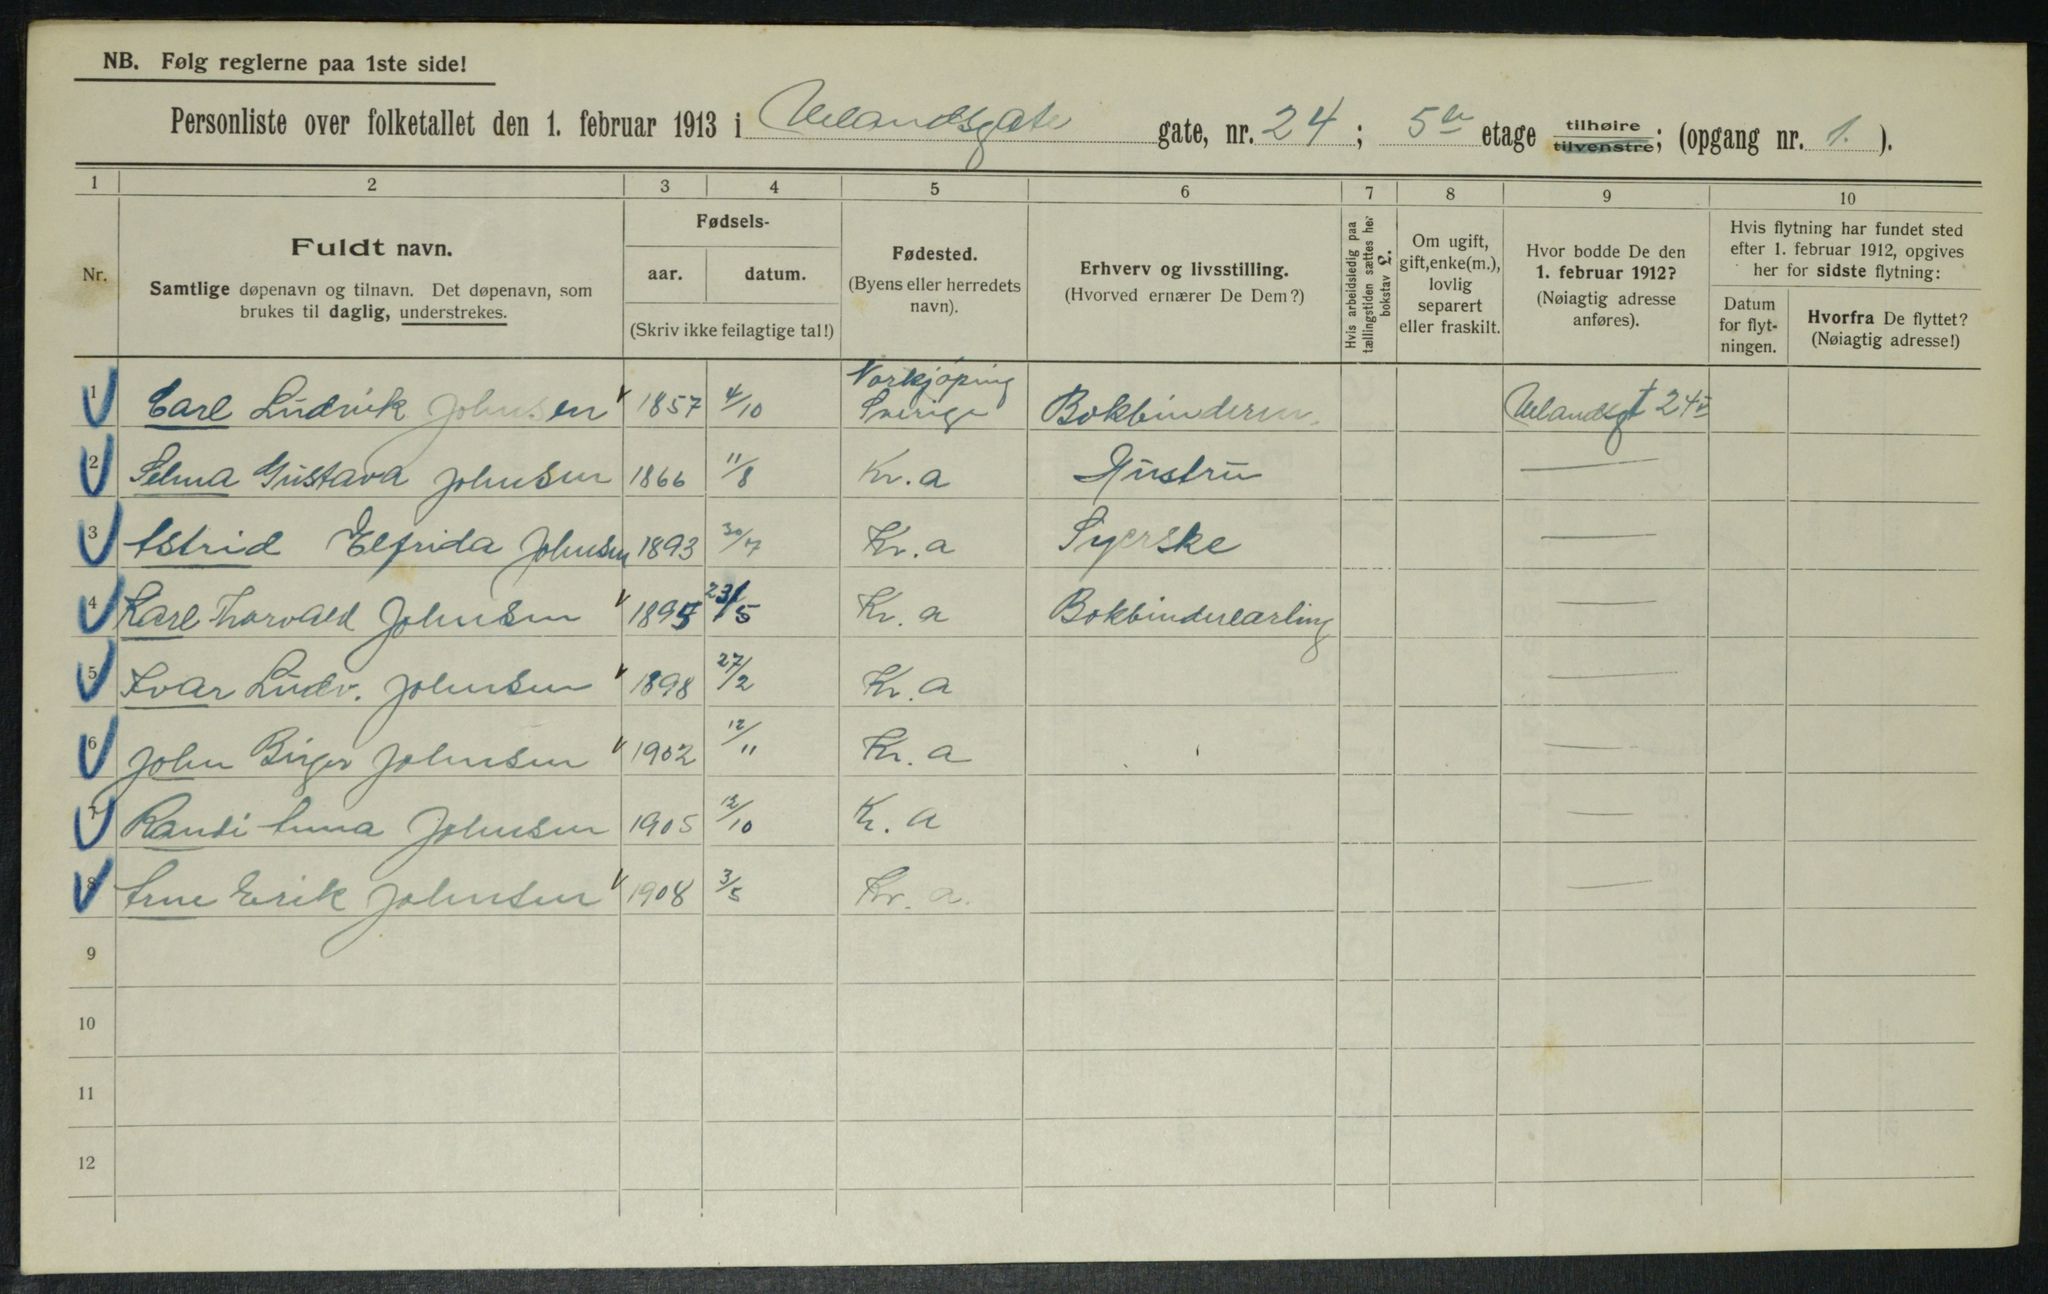 NB. Følg reglerne paa 1ste side!
Personliste over folketallet den 1. februar 1913 i Uelandsgate gate, nr. 24; 5te etage tilhøire tilvenstre; (opgang nr. 1.).
1 2 3 4 5 6 7 8 9 10
Nr.
Fuldt navn.
Samtlige døpenavn og tilnavn. Det døpenavn, som
brukes til daglig, understrekes.
Fødsels-
aar. datum.
(Skriv ikke feilagtige tal!)
Fødested.
(Byens eller herredets
navn).
Erhverv og livsstilling.
(Hvorved ernærer De Dem?)
Hvis arbeidsledig paa
tællingstiden sættes her
bokstav L.
Om ugift,
gift, enke(m.),
lovlig
separert
eller fraskilt.
Hvor bodde De den
1. februar 1912?
(Nøiagtig adresse
anføres).
Hvis flytning har fundet sted
efter 1. februar 1912, opgives
her for sidste flytning:
Datum
for flyt-
ningen.
Hvorfra De flyttet?
(Nøiagtig adresse!)
1 Carl Ludvik Johnsen 1857 4/10 Norkjøping Sverige Bokbinderm. Uelandsgt 24 V
2 Selma Gustava Johnsen 1866 11/8 Kr. a Hustru —
3 Astrid Elfrida Johnsen 1893 30/7 Kr. a Syerske —
4 Karl Thorvald Johnsen 1895 23/5 Kr. a Bokbinderlærling —
5 Ivar Ludv. Johnsen 1898 27/2 Kr. a —
6 John Birger Johnsen 1902 12/11 Kr. a —
7 Randi Anna Johnsen 1905 12/10 K. a —
8 Arne Erik Johnsen 1908 3/5 Kr. a. —
9
10
11
12